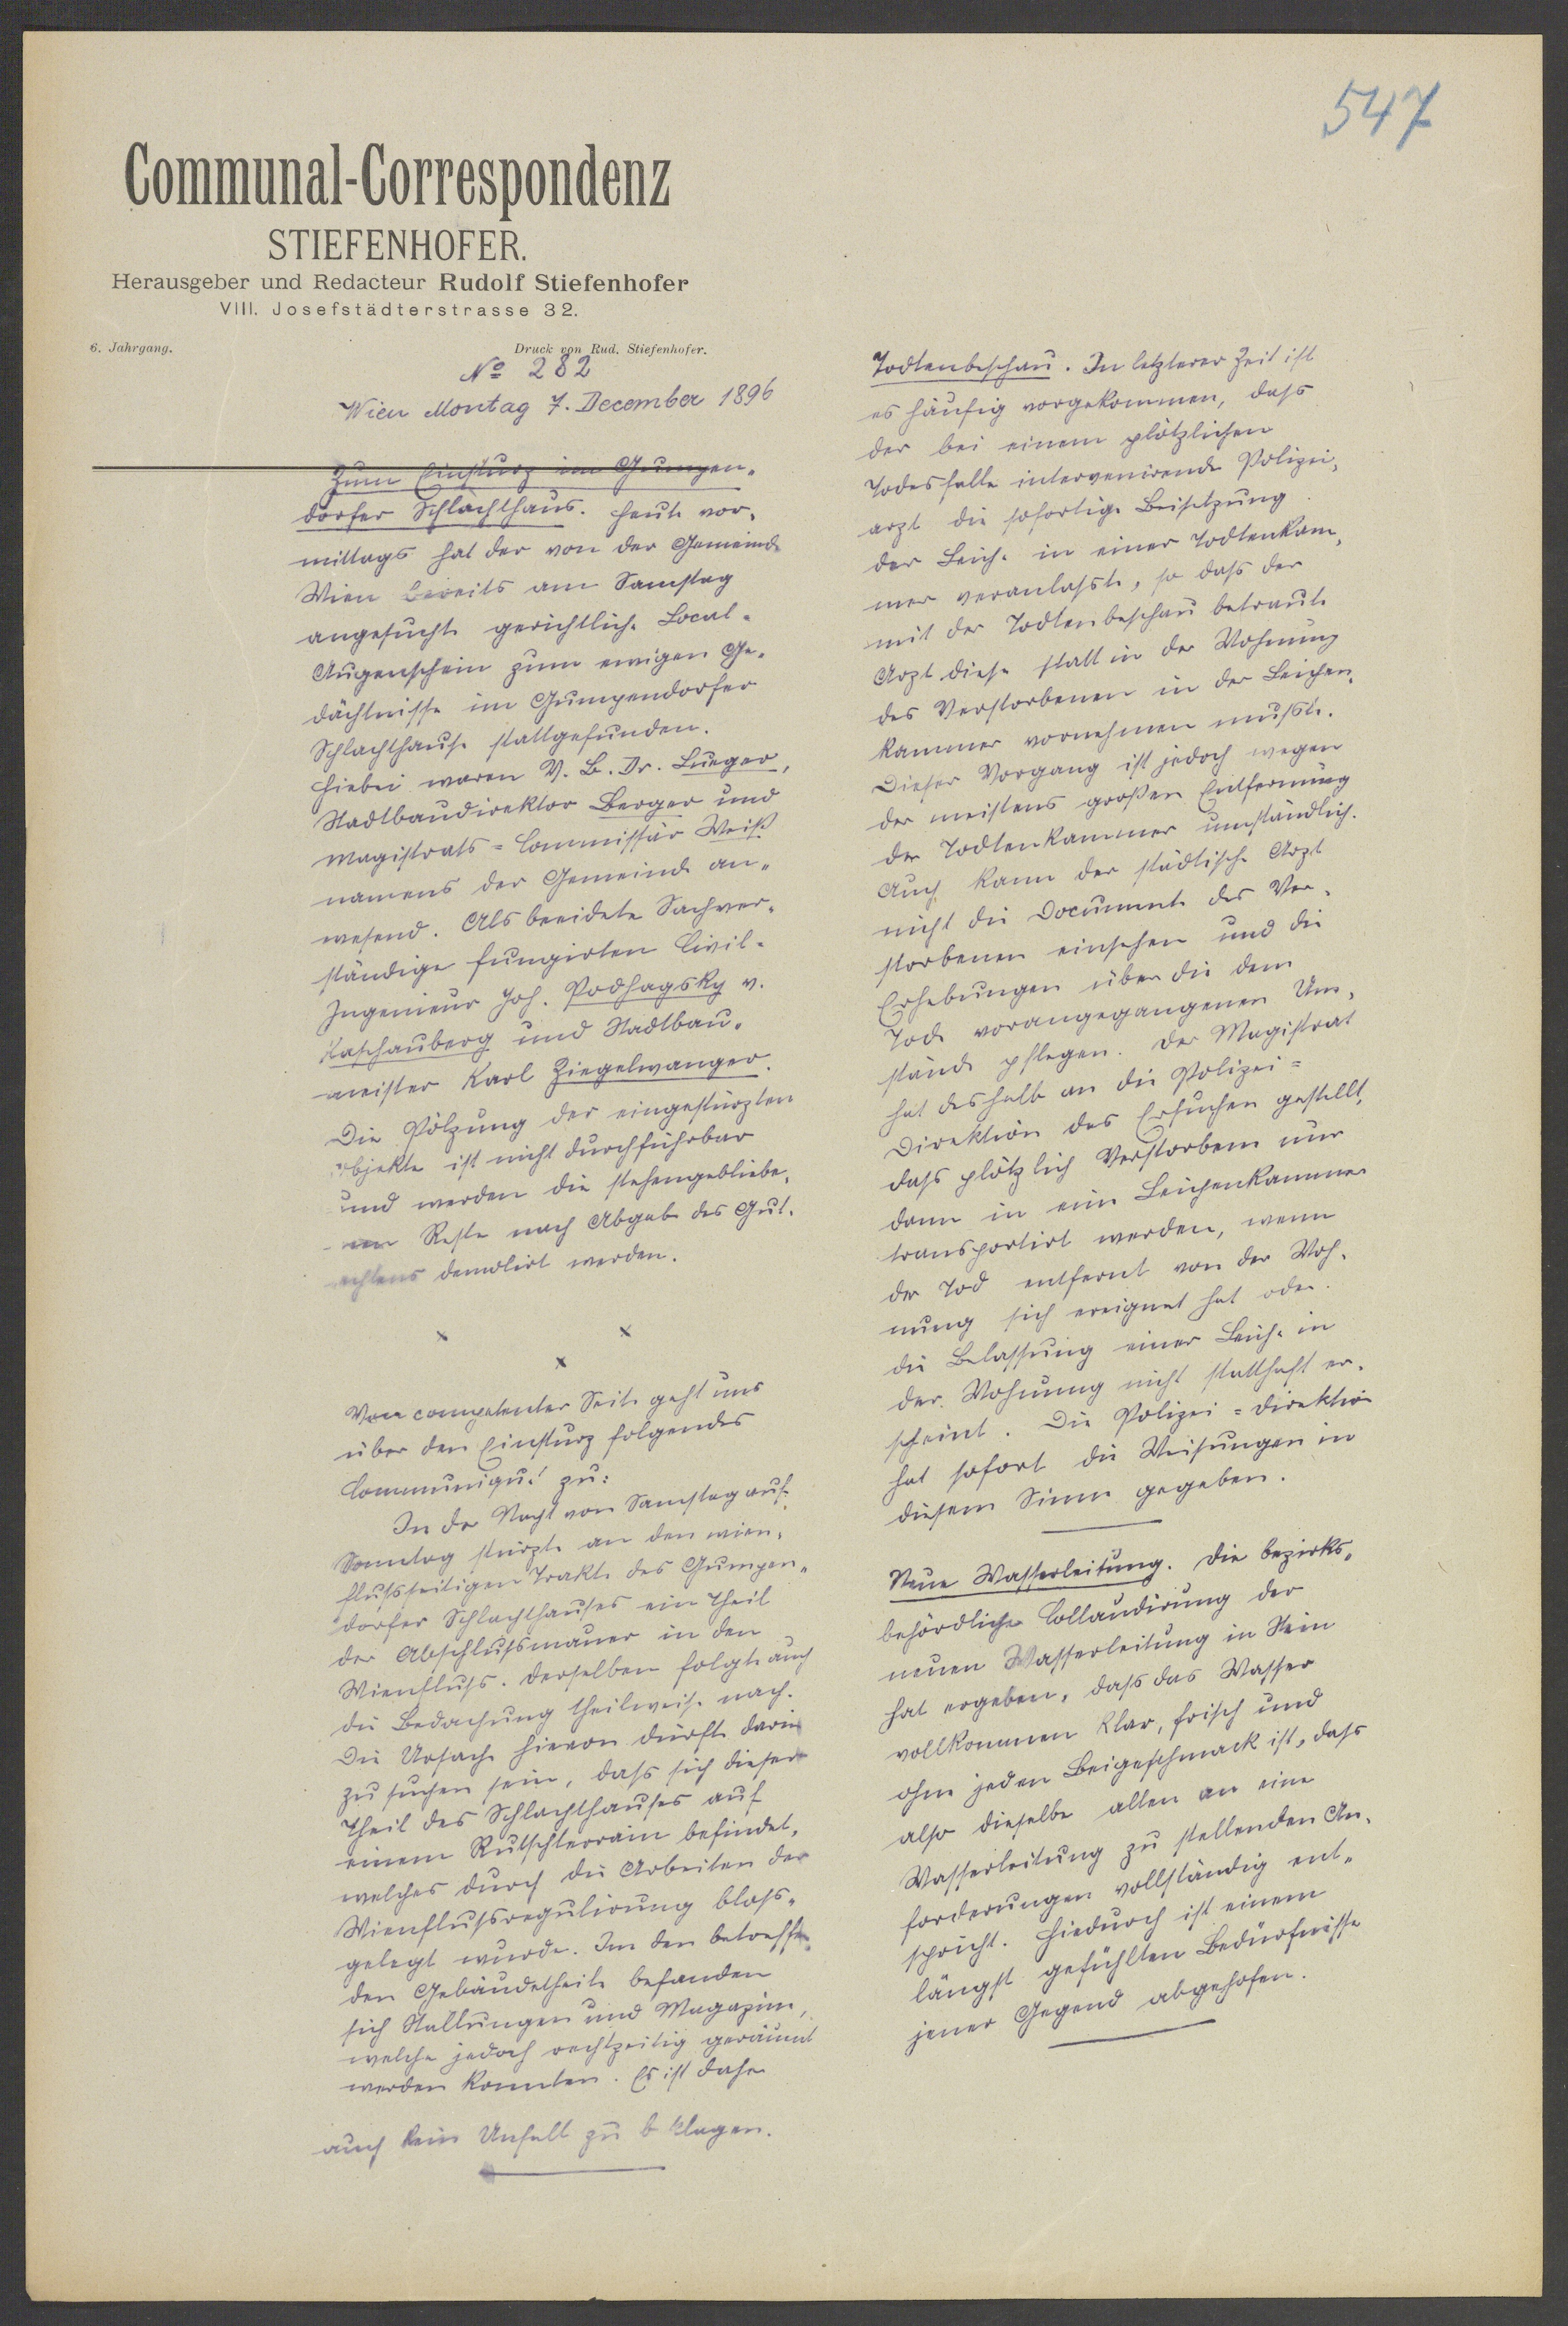 547
Communal-Correspondenz
STIEFENHOFER.
Herausgeber und Redacteur Rudolf Stiefenhofer
VIII. Josefstädterstrasse 32.
6. Jahrgang.
Druck von Rud. Stiefenhofer.
No 282
Wien Montag 7. December 1896
Zum Einsturz im Gumpen-
dorfer Schlachthaus. Heute vor-
mittags hat der von der Gemeinde
Wien bereits am Samstag
angesuchte gerichtliche Local-
Augenschein zum ewigen Ge-
dächtnisse im Gumpendorfer
Schlachthause stattgefunden.
Hiebei waren V. B. Dr. Lueger,
Stadtbaudirektor Berger und
Magistrats-Commissär Weiß
namens der Gemeinde an-
wesend. Als beeidete Sachver-
ständige fungirten Civil-
Ingenieur Joh. Podhagsky v.
Kaschauberg und Stadtbau-
meister Karl Ziegelwanger.
Die Pölzung der eingestürzten
Objekte ist nicht durchführbar
und werden die stehengebliebe-
nen Reste nach Abgabe des Gut-
achtens demolirt werden.
x x
x
Von competenter Seite geht uns
über den Einsturz folgendes
Communiqué zu:
In der Nacht von Samstag auf
Sonntag stürzte an den wien-
flußseitigen Trakte des Gumpen-
dorfer Schlachthauses ein Theil
der Abschlußmauer in den
Wienfluß. Derselben folgte auch
die Bedachung theilweise nach.
Die Ursache hievon dürfte darin
zu suchen sein, dass sich dieser
Theil des Schlachthauses auf
einem Rutschterrain befindet,
welches durch die Arbeiten der
Wienflußregulirung bloss-
gelegt wurde. Im den betreffen-
den Gebäudetheile befanden
sich Stallungen und Magazine,
welche jedoch rechtzeitig geräumt
werden konnten. Es ist daher
auch kein Unfall zu beklagen.
Todtenbeschau. In letzterer Zeit ist
es häufig vorgekommen, dass
der bei einem plötzlichen
Todesfalle intervenirende Polizei-
arzt die sofortige Beisetzung
der Leiche in einer Todtenkam-
mer veranlasste, so dass der
mit der Todtenbeschau betraute
Arzt diese statt in der Wohnung
des Verstorbenen in der Leichen-
kammer vornehmen mußte.
Dieser Vorgang ist jedoch wegen
der meistens großen Entfernung
der Todtenkammer umständlich.
Auch kann der städtische Arzt
nicht die Documente des Ver-
storbenen einsehen und die
Erhebungen über die dem
Tode vorangegangenen Um-
stände pflegen. Der Magistrat
hat deshalb an die Polizei-
Direktion das Ersuchen gestellt,
dass plötzlich Verstorbene nur
dann in eine Leichenkammer
transportirt werden, wenn
der Tod entfernt von der Woh-
nung sich ereignet hat oder
die Belassung einer Leiche in
der Wohnung nicht statthaft er-
scheint. Die Polizei-Direktion
hat sofort die Weisungen in
diesem Sinne gegeben.
Neue Wasserleitung. Die bezirks-
behördliche Collaudirung der
neuen Wasserleitung in Stein
hat ergeben, dass das Wasser
vollkommen klar, frisch und
ohne jeden Beigeschmack ist, dass
also dieselbe allen an eine
Wasserleitung zu stellenden An-
forderungen vollständig ent-
spricht. Hiedurch ist einem
längst gefühlten Bedürfnisse
jener Gegend abgeholfen.